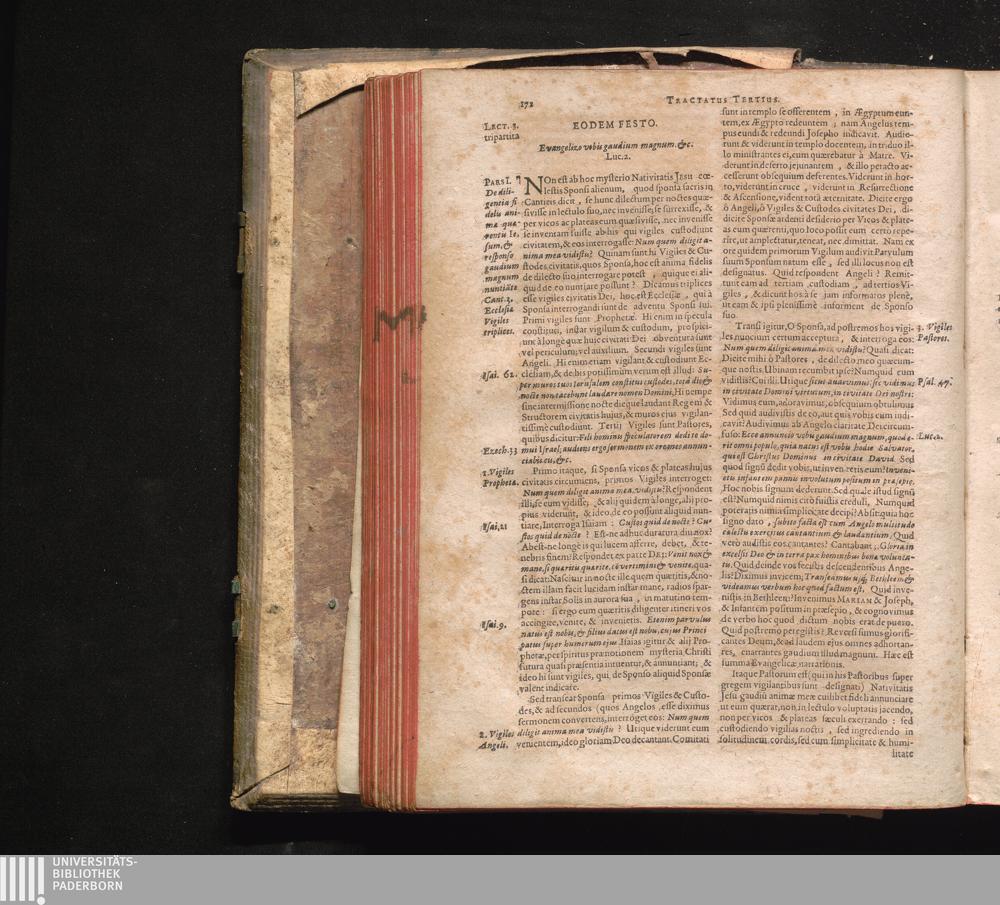 172
TRACTATUS TERTIUS.
LECT. 3.
tripartita
EODEM FESTO.
Evangelizo vobis gaudium magnum. &c.
Luc. 2.
PARS I.
De dili-
gentia fi
delis ani-
mæ quæ-
rentis Ie-
sum, &
responso
gaudium
magnum
nuntiãte
Cant. 3.
Ecclesiæ
Vigiles
triplices.
NOn est ab hoc mysterio Nativitatis JESU cœ-
lestis Sponsi alienum, quod sponsa sacris in
Canticis dicit, se hunc dilectum per noctes quæ-
sivisse in lectulo suo, nec invenisse; se surrexisse, &
per vicos ac plateas eum quæsivisse, nec invenisse
se inventam fuisse ab his qui vigiles custodiunt
civitatem, & eos interrogasse: Num quem diligit a-
nima mea vidistis? Quinam sunt hi Vigiles & Cu-
stodes civitatis, quos Sponsa, hoc est anima fidelis
de dilecto suo interrogare potest, quique ei ali-
quid de eo nuntiare possunt? Dicamus triplices
esse vigiles civitatis Dei, hoc est Ecclesiæ, qui à
Sponsa interrogandi sunt de adventu Sponsi sui.
Primi vigiles sunt Prophetæ. Hi enim in specula
constituti, instar vigilum & custodum, prospici-
unt à longe quæ huic civitati Dei obventura sunt
vel periculum, vel auxilium. Secundi vigiles sunt
Angeli. Hi enim etiam vigilant & custodiunt Ec-
Isai. 62. clesiam, & de his potissimùm verum est illud: Su-
per muros tuos Ierusalem constitui custodes, totâ die &
nocte non tacebunt laudare nomen Domini, Hi nempe
sine intermissione nocte dieque laudant Regem &
Structorem civitatis hujus, & muros ejus vigilan-
tissimè custodiunt. Tertij Vigiles sunt Pastores,
quibus dicitur: Fili hominis speculatorem dedi te do-
Ezech. 33 mui Israel; audiens ergo sermonem ex ore meo annun-
ciabis eis, &c.
1. Vigiles
Prophetæ.
Primo itaque, si Sponsa vicos & plateas hujus
civitatis circumiens, primos Vigiles interroget:
Num quem diligit anima mea, vidistis? Respondent
illi, se eum vidisse, & alij quidem à longe, alij pro-
pius viderunt, & ideo, de eo possunt aliquid nun-
Isai, 21 tiare, Interroga Isaiam: Custos quid de nocte? Cu-
stos quid de nocte? Est-ne adhuc duratura diu nox?
Abest-ne longè is qui lucem afferre, debet, & te-
nebris finem? Respondet ex parte DEI: Venit nox &
mane, si quæritis quærite, convertimini & venite, qua-
si dicat: Nascitur in nocte ille quem quæritis, & no-
ctem illam facit lucidam instar mane, radios spar-
gens instar Solis in aurora sua, in matutino tem-
pore: si ergo eum quæritis diligenter itineri vos
Isai. 9. accingite, venite, & invenietis. Etenim parvulus
natus est nobis, & filius datus est nobis, cujus Princi
patus super humerum ejus. Isaias igitur & alij Pro-
phetæ, per spiritus prænotionem mysteria Christi
futura quasi præsentia intuentur, & annuntiant; &
ideo hi sunt vigiles, qui, de Sponso aliquid Sponsæ
valent indicare.
Sed transeat Sponsa primos Vigiles & Custo-
des, & ad secundos (quos Angelos, esse diximus
sermonem convertens, interroget eos: Num quem
2. Vigiles diligit anima mea vidistis? Utique viderunt eum
Angeli. venientem, ideo gloriam Deo decantant. Comitati
sunt in templo se offerentem, in Ægyptum eun-
tem, ex Ægypto redeuntem; nam Angelus tem-
pus eundi & redeundi Josepho indicavit. Audie-
runt & viderunt in templo docentem, in triduo il-
lo ministrantes ei, cum quærebatur à Matre. Vi-
derunt in deserto jejunantem, & illo peracto ac-
cesserunt obsequium deferentes. Viderunt in hor-
to, viderunt in cruce, viderunt in Resurrectione
& Ascensione, vident totâ æternitate. Dicite ergo
ô Angeli, ô Vigiles & Custodes civitatis Dei, di-
dicite Sponsæ ardenti desiderio per Vicos & plate-
as eum quærenti, quo loco possit eum certò repe-
rire, ut amplectatur, teneat, nec dimittat. Nam ex
ore quidem primorum Vigilum audivit Parvulum
suum Sponsum natum esse, sed illi locus non est
designatus. Quid respondent Angeli? Remit-
tunt eam ad tertiam custodiam, ad tertios Vi-
giles, & dicunt hos à se jam informatos plenè,
ut eam & ipsi plenissimè informent de Sponso
suo.
Transi igitur, O Sponsa, ad postremos hos vigi- 3. Vigiles
les nuncium certum acceptura, & interroga eos: Pastores.
Num quem diligit anima mea vidistis? Quasi dicat:
Dicite mihi ô Pastores, de dilecto meo quæcum-
que nostis. Ubinam recumbit ipse? Numquid eum
vidistis? Cui illi. Utique sicut audivimus, sic vidimus Psal. 47.
in civitate Domini virtutum, in civitate Dei nostri:
Vidimus eum, adoravimus, obsequium obtulimus
Sed quid audivistis de eo, aut quis vobis eum indi-
cavit? Audivimus ab Angelo claritate Dei circum-
fuso: Ecce annuncio vobis gaudium magnum, quod e- Luc. 2.
rit omni populo, quia natus est vobis hodie Salvator,
qui est Christus Dominus in civitate David. Sed
quod signũ dedit vobis, ut inveniretis eum? Inveni-
etis infantem pannis involutum positum in præsepio.
Hoc nobis signum dederunt. Sed quale istud signũ
est? Numquid nimis citò fuistis creduli, Numquid
poteratis nimia simplicitate decipi? Absit: quia hoc
signo dato, subito facta est cum Angelo multitudo
cælestis exercitus cantantium & laudantium, Quid
verò audistis eos cantantes? Cantabant; Gloria in
excelsis Deo & in terra pax hominibus bonæ volunta-
tis. Quid deinde vos fecistis descendentibus Ange-
lis? Diximus invicem; Transeamus usq; Bethleem &
videamus verbum hoc quod factum est. Quid inve-
nistis in Bethleem? Invenimus MARIAM & Joseph,
& Infantem positum in præsepio, & cognovimus
de verbo hoc quod dictum nobis erat de puero.
Quid postremo peregistis? Reversi sumus glorifi-
cantes Deum, & ad laudem ejus omnes adhortan-
tes, enarrantes gaudium illud magnum. Hæc est
summa Evangelicæ narrationis.
Itaque Pastorum est (qui in his Pastoribus super
gregem vigilantibus sunt designati) Nativitatis
Jesu gaudiũ animæ meæ cuilibet fideli annunciare
ut eum quærat, non in lectulo voluptatis jacendo,
non per vicos & plateas sæculi exerrando: sed
custodiendo vigilias noctis, sed ingrediendo in
solitudinem cordis, sed cum simplicitate & humi-
litate
UNIVERSITÄTS-
BIBLIOTHEK
PADERBORN